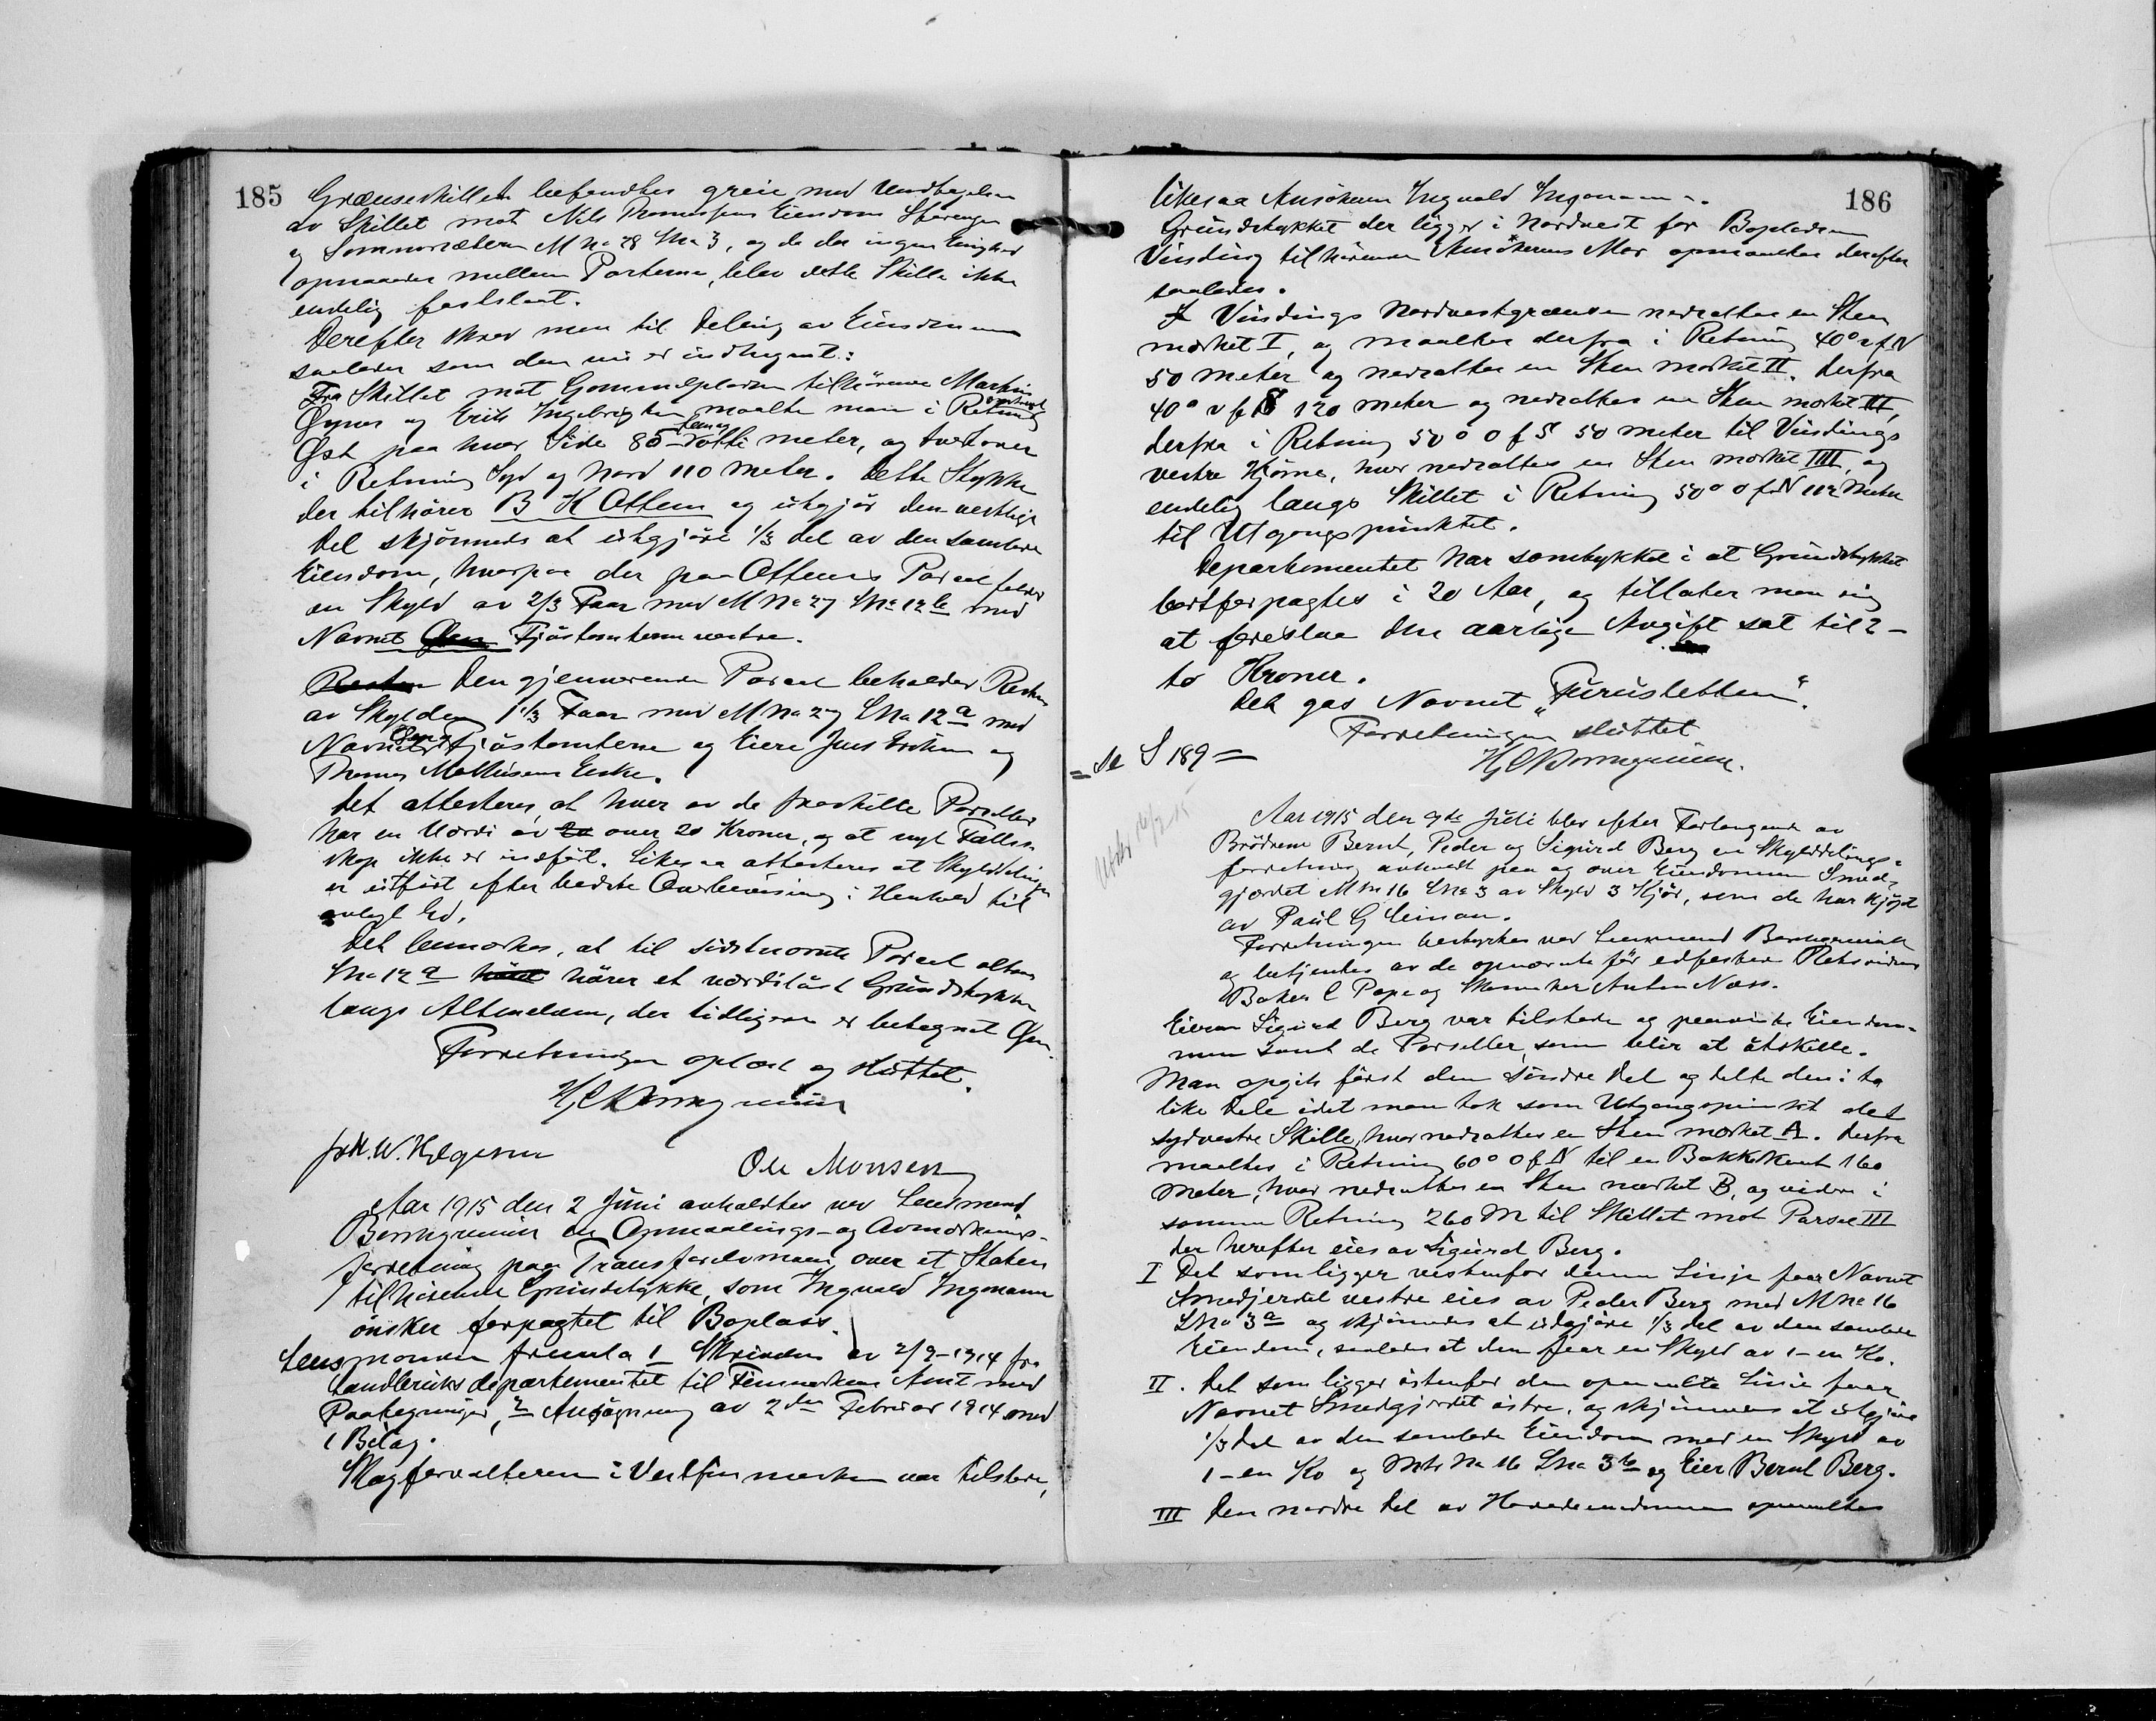 185
Grænseskillet befandtes greie med Undtagelse
av Skillet mot Nils Thomassens Eiendom
og M No 28 LNo 3, og da der ingen Enighed
opnaaedes mellem Parterne, blev dette Skille ikke
endelig fastslaat.
Derefter skred man til Deling av Eiendommen
saaledes som den nu er indhegnet:
Fra Skillet mot tilhørende Martin
og Erik Ingebrigtsen maalte man i Retning
Øst paa hver Side 85 - fem og otti meter, og tvertover
i Retning Syd og Nord 110 meter. Dette Stykke
der tilhører B H Ottem og utgjør den vestlige
Del skjønnedes at utgjøre 1/3 del av den samlede
Eiendom, hvorpaa der paa Ottems Parcel falder
en Skyld av 2/3 Faar med M No 27 LNo 12 b med
Navnet Fjøstomterne vestre.
Den gjenværende Parcel beholder Resten
av Skylden 1 1/3 Faar med M No 27 LNo 12 a med
Navnet Fjøstomterne og Eiere Jens og
Thomas Mathisens Enke.
Det attesteres at hver av de fraskilte Parseller
har en Værdi av over 20 Kroner, og at nyt Fælles-
skap ikke er indført. Likesaa attesteres at Skylddelingen
er utført efter bedste Overbevisning i Henhold til
avlagt Ed.
Det bemærkes, at til sidstnævnte Parcel altsaa
LNo 12 a hører et værdiløst Grundstykke
langs Altenelven, der tidligere er betegnet Øen.
Forretningen oplæst og sluttet.
Ole Monsen
Aar 1915 den 2 Juni avholdtes ved Lensmand
en Opmaalings- og Avmerknings-
forretning paa over et Staten
tilhørende Grundstykke, som Ingvald Ingemann
ønsker forpagtet til Boplass.
Lensmanden fremla 1 Skrivelse av 2/9-1914 fra
Landbruksdepartementet til Finmarkens Amt med
Paategninger, 2 Ansøgning av 2den Februar 1914 med
1 Bilag.
Skogforvalteren i Vestfinmarken var tilstede,
186
likesaa Ansøkeren Ingvald Ingemann.
Grundstykket der ligger i Nordvest for Bopladsen
Vinding tilhørende Ansøkerens Mor opmaaltes derefter
saaledes.
I Vindings Nordvestgrænse nedsattes en Sten
merket I, og maaltes derfra i Retning 40° v f N
50 meter og nedsattes en Sten merket II. Derfra
40° v f S 120 meter og nedsattes en Sten merket III,
derfra i Retning 50° O f S 50 meter til Vindings
vestre Hjørne, hvor nedsattes en Sten merket IIII, og
endelig langs Skillet i Retning 50° O f N 112 Meter
til Utgangspunktet.
Departementet har samtykket i at Grundstykket
bortforpagtes i 20 Aar, og tillater man sig
at foreslaa den aarlige Avgift sat til 2 -
to Kroner.
Det gas Navnet "Furusletten".
Forretningen sluttet
= Se S 189 =
Aar 1915 den 9de Juli blev efter Forlangende av
Brødrene Bernt, Peder og Sigurd Berg en Skylddelings-
forretning avholdt paa og over Eiendommen Smed-
gjærdet M No 16 LNo 3 av Skyld 3 Kjør, som de har kjøpt
av Paul G
Forretningen bestyrtes ved Lensmand
og betjentes av de opnævnte før edfæstede Retsvidner
og Anton Næss.
Eieren Sigurd Berg var tilstede og paaviste Eiendom-
men samt de Parseller, som blir at utskille.
Man opgik først den søndre Del og delte den i to
like Dele idet man tok som Utgangspunkt det
sydvestre Skille, hvor nedsattes en Sten merket A. Derfra
maaltes i Retning 60° O f N til en Bakkekant 160
Meter, hvor nedsattes en Sten merket B, og videre i
samme Retning 260 M til Skillet mot Parsel III
der herefter eies av Sigurd Berg.
I Det som ligger vestenfor denne Linje faar Navnet
Smedjerdet vestre eies av Peder Berg med M No 16
LNo 3 a og skjønnedes at utgjøre 1/3 del av den samlede
Eiendom, saaledes at den faar en Skyld av 1 - en Ko.
II. Det som ligger østenfor den opmaalte Linie faar
Navnet Smedgjerdet østre, og skjønnedes at utgjøre
1/3 del av den samlede Eiendom med en Skyld av
1 - en Ko og Mtr No 16 LNo 3 b og Eier Bernt Berg.
III Den nordre Del av Hovedeiendommen opmaaltes